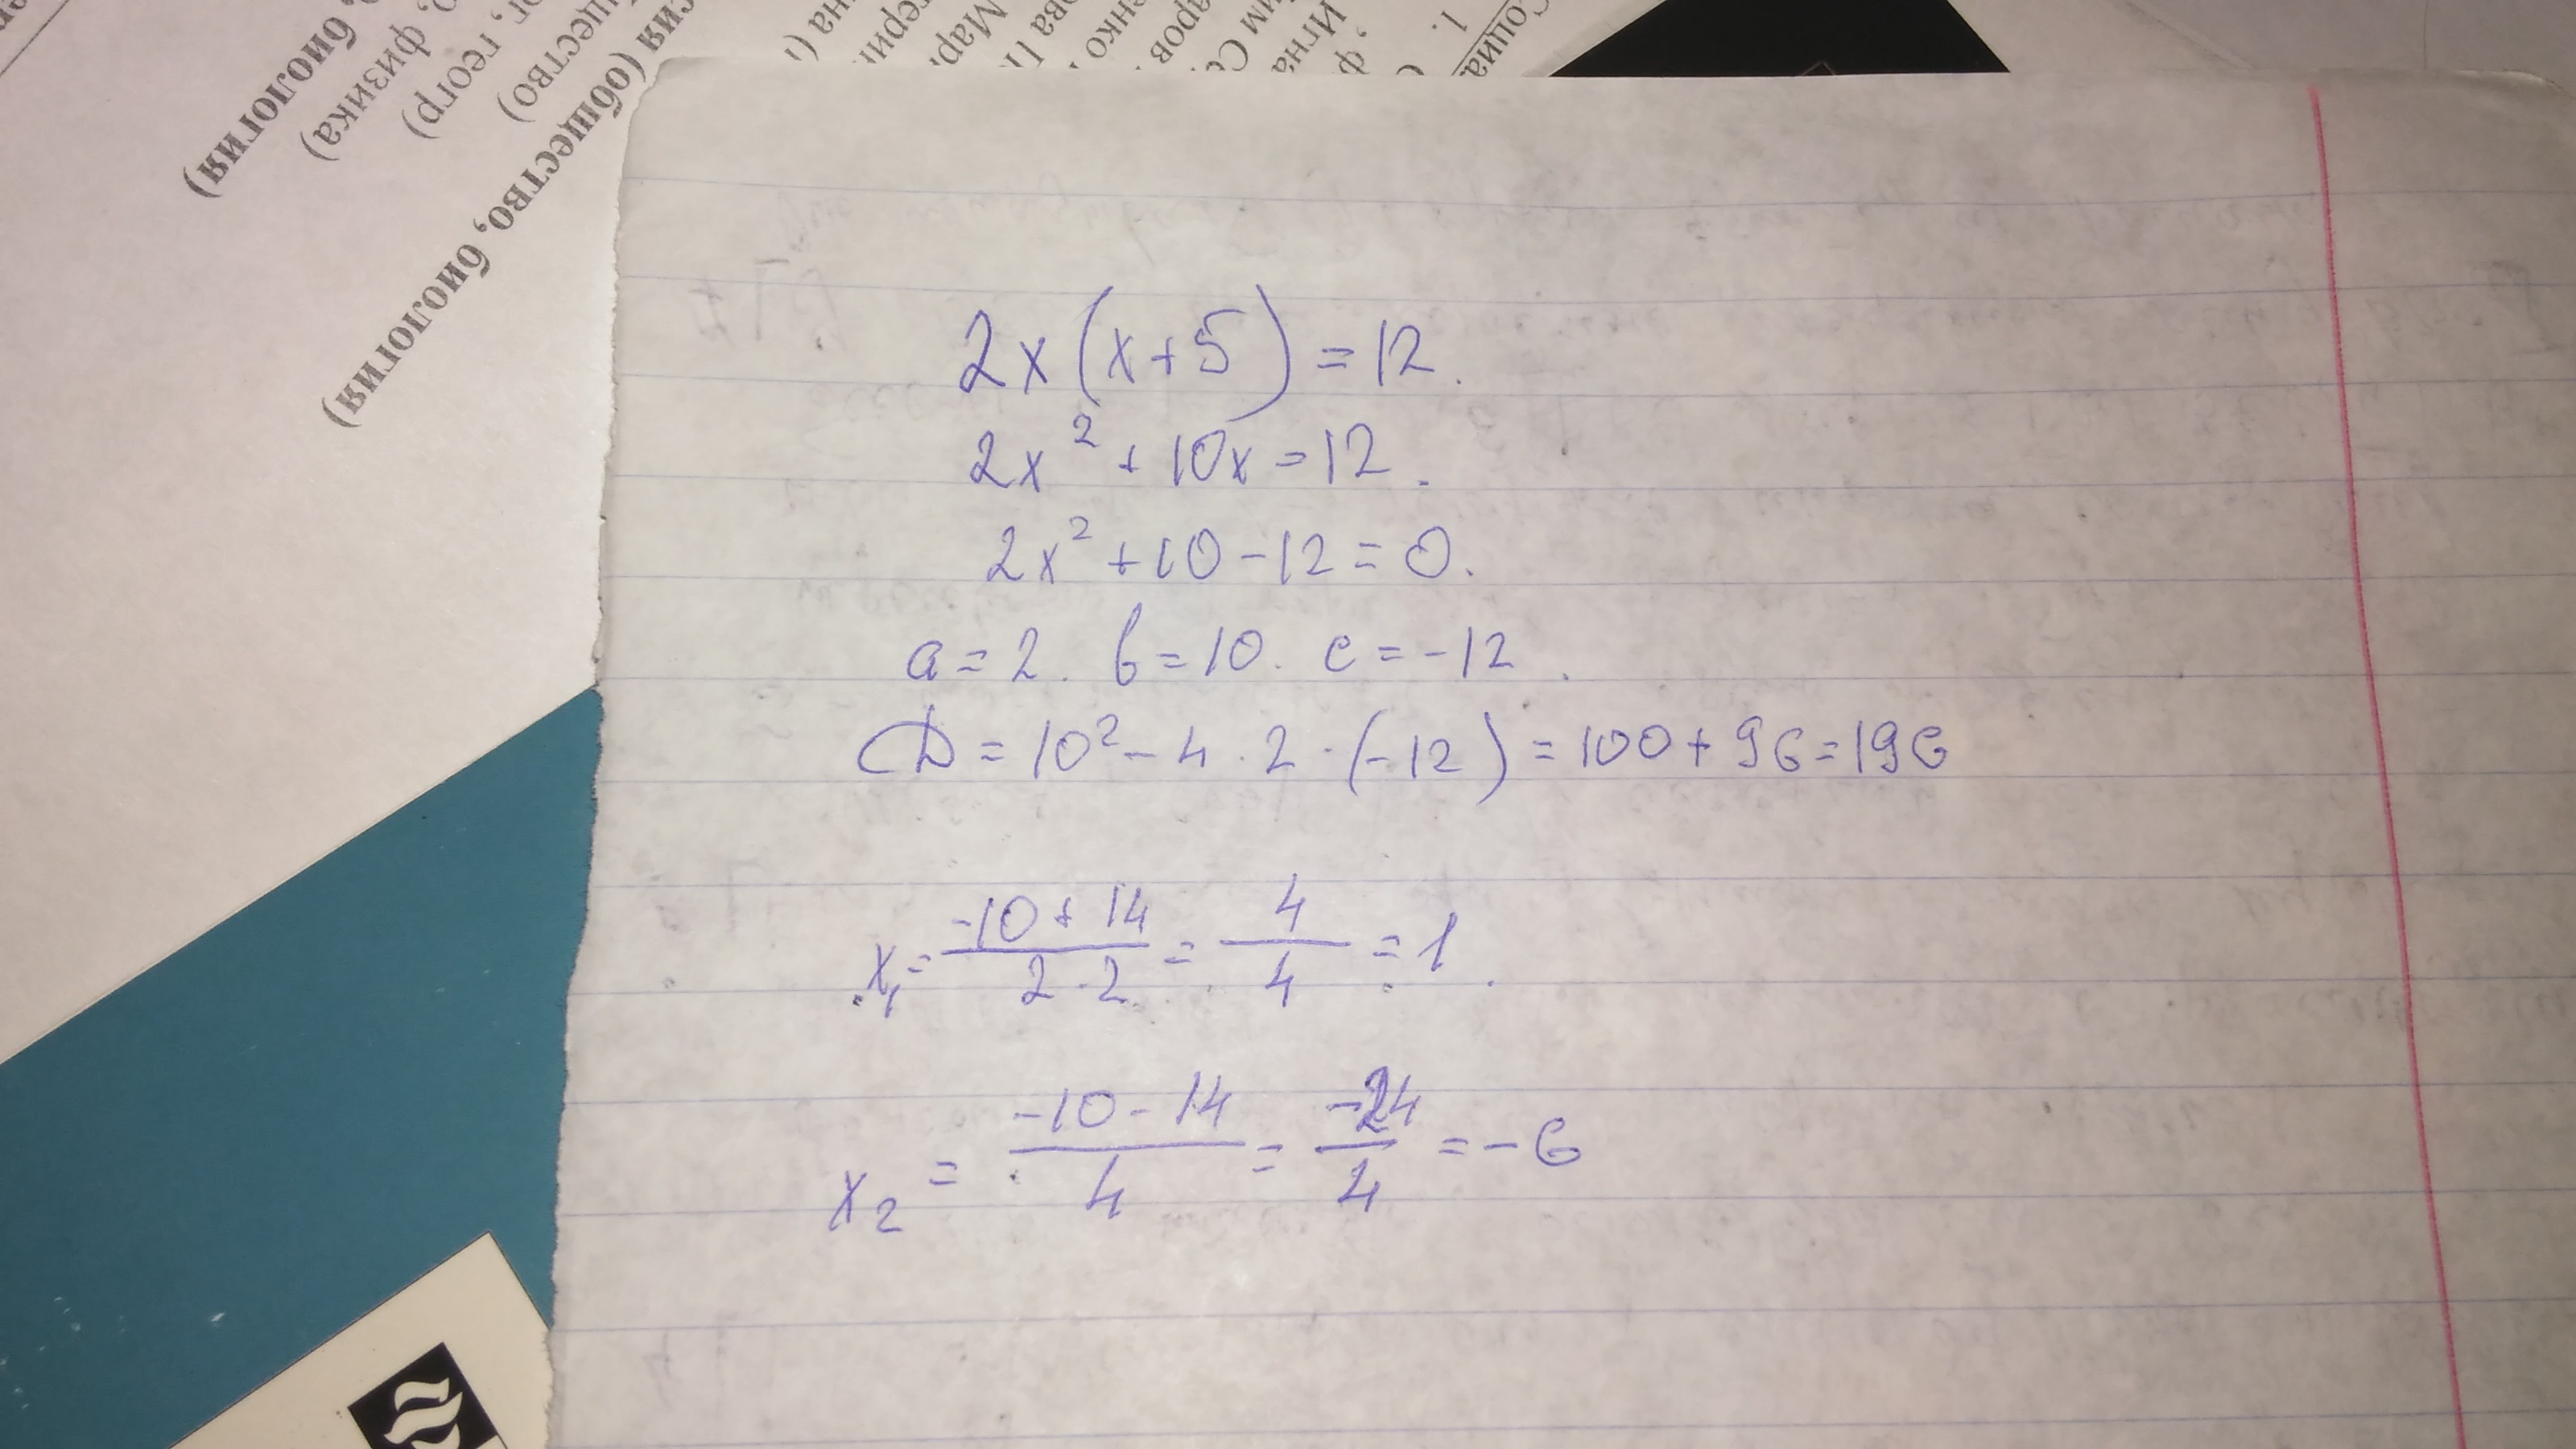 биология)
, физика)
ог, геогр)
щество)
сия (общество, биология)
Социа
1.
2x(x+5)=12.
2x²+10x=12.
2x²+10-12=0.
a=2. b=10. c=-12.
D=10²-4·2·(-12)=100+96=196
x₁=(-10+14)/(2·2)=4/4=1.
x₂=(-10-14)/4=-24/4=-6